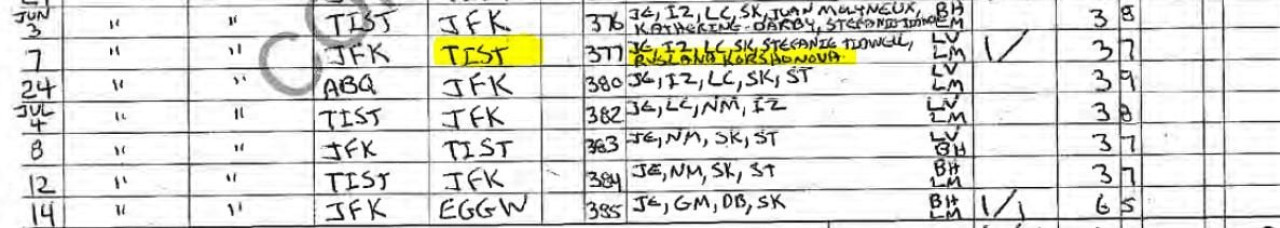 JUN 3 " " TIST JFK 376 JE, IZ, LC, SK, JUAN MOLYNEUX, BH
KATHERINE DARBY, STEFANIE LM 3 8
7 " " JFK TIST 377 JE, IZ, LC, SK, STEFANIE TIDWELL, LV 1/ 3 7
RUSLANA KORSHONOVA LM
24 " " ABQ JFK 380 JE, IZ, LC, SK, ST LV LM 3 9
JUL 4 " " TIST JFK 382 JE, LC, NM, IZ LV LM 3 8
8 " " JFK TIST 383 JE, NM, SK, ST LV BH 3 7
12 " " TIST JFK 384 JE, NM, SK, ST BH LM 3 7
14 " " JFK EGGW 385 JE, GM, DB, SK BH LM 1/1 6 5